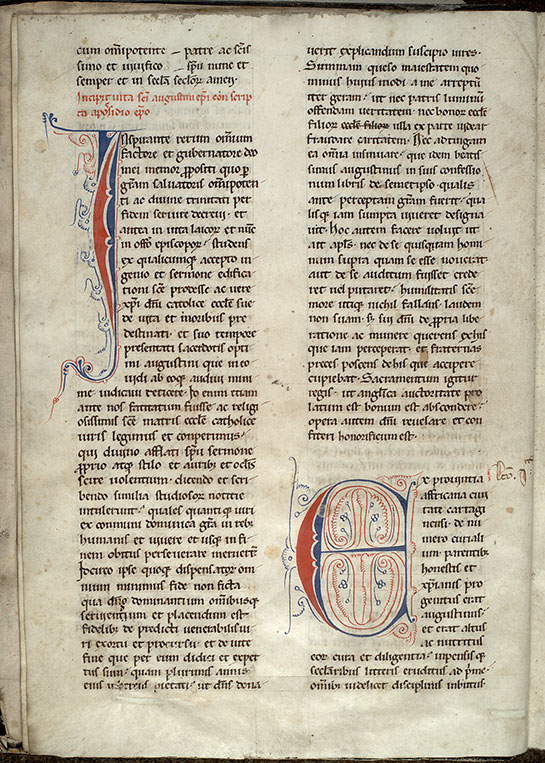 cum omīpotente patre ac scīs
simo et uiuifico spū nunc et
semper et in secl̄a secl̄oꝝ amen·
Incipit uita scī augustini ep̄i con scrip
ta a possidio ep̄o
INspirante rerum omīum
factore et gubernatore deo
mei memor p̄positi quo ꝑ
gr̄am saluatoris omīpoten
ti ac diuine trinitati per
fidem seruire decreui· et
antea in uita laicoꝝ et nūc
in offō episcopoꝝ· studens
ex qualicumq; accepto in
genio et sermone edifica
tioni scē prodesse ac uere
xp̄i dn̄i catholice ecclē sue
de uita et moribus pre
destinati· et suo tempore
presentati sacerdotis opti
mi augustini que in eo
uidi ab eoq; audiui mini
me iudicaui reticere· Id enim etiam
ante nos factitatum fuisse ac religi
osissimis scē matris ecclē catholice
uiris legimus et conperimus·
qui diuino afflati spū· sermone
proprio atq; stilo et auribus et oclis
scire uolentium· dicendo et scri
bendo similia studiosoꝝ notitie
intulerunt· quales quantiq; uiri
ex cōmuni dominica gr̄a in reb;
humanis et uiuere et usq; in fi
nem obitus perseuerare meruerūt
Idcirco ipse quoq; dispensatoꝝ om
nium minimus fide non ficta
qua dn̄o dominantium omībusq;
seruiendum et placendum est
fidelib; de predicti uenerabilis ui
ri exortu et procursu· et de uite
fine que per eum didici et exper
tus sum· quam plurimis annis
eius inherens pietati· ut dn̄s dona
uerit explicandum suscipio uires·
Summam queso maiestatem quo
munus huius modi a me arreptū
ita geram· ut nec patris luminū
offendam ueritatem· nec bonoꝝ ecclē
filioꝝ ecclē filioꝝ ulla ex parte uidear
fraudare caritatem· Nec adtingam
ea omīa insinuare· que idem beatis
simus augustinus in suis confessio
num libris de semetipso· qualis
ante perceptam gr̄am fuerit· qua
lisq; iam sumpta uiueret designa
uit· Hoc autem facere uoluit ut
ait apls̄· nec de se quisquam homi
num supra quam se esse nouerat
aut de se auditum fuisset crede
ret uel putaret· humilitatis scē
more utiq; nichil fallens laudem
non suam· s; sui dn̄i de propria libe
ratione ac munere querens ex his
que iam perceperat· et fraternas
preces poscens de his que accipere
cupiebat· Sacramentum igitur
regis· ut anglica auctoritate pro
latum est bonum est abscondere·
opera autem dn̄i reuelare et con
fiteri honorificum est·
EX prouintia
affricana ciui
tate cartagi
nensi· de nu
mero curiali
um parentib;
honestis et
xp̄ianis pro
genitus erat
augustinus·
et erat altus
ac nutritus
eoꝝ cura et diligentia· inpensisq;
seclaribus litteris eruditus ad prime·
omībus uidelicet disciplinis inbutus